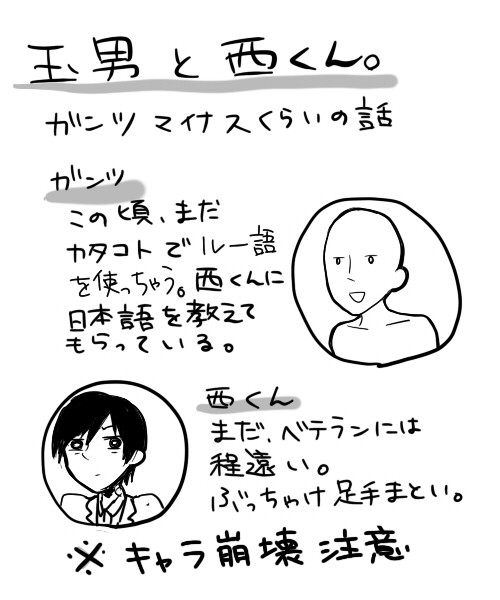 玉男と西くん。
ガンツマイナスくらいの話
ガンツ
この頃、まだ
カタコトでルー語
を使っちゃう。西くんに
日本語を教えて
もらっている。
西くん
まだ、ベテランには
程遠い。
ぶっちゃけ足手まとい。
※キャラ崩壊注意